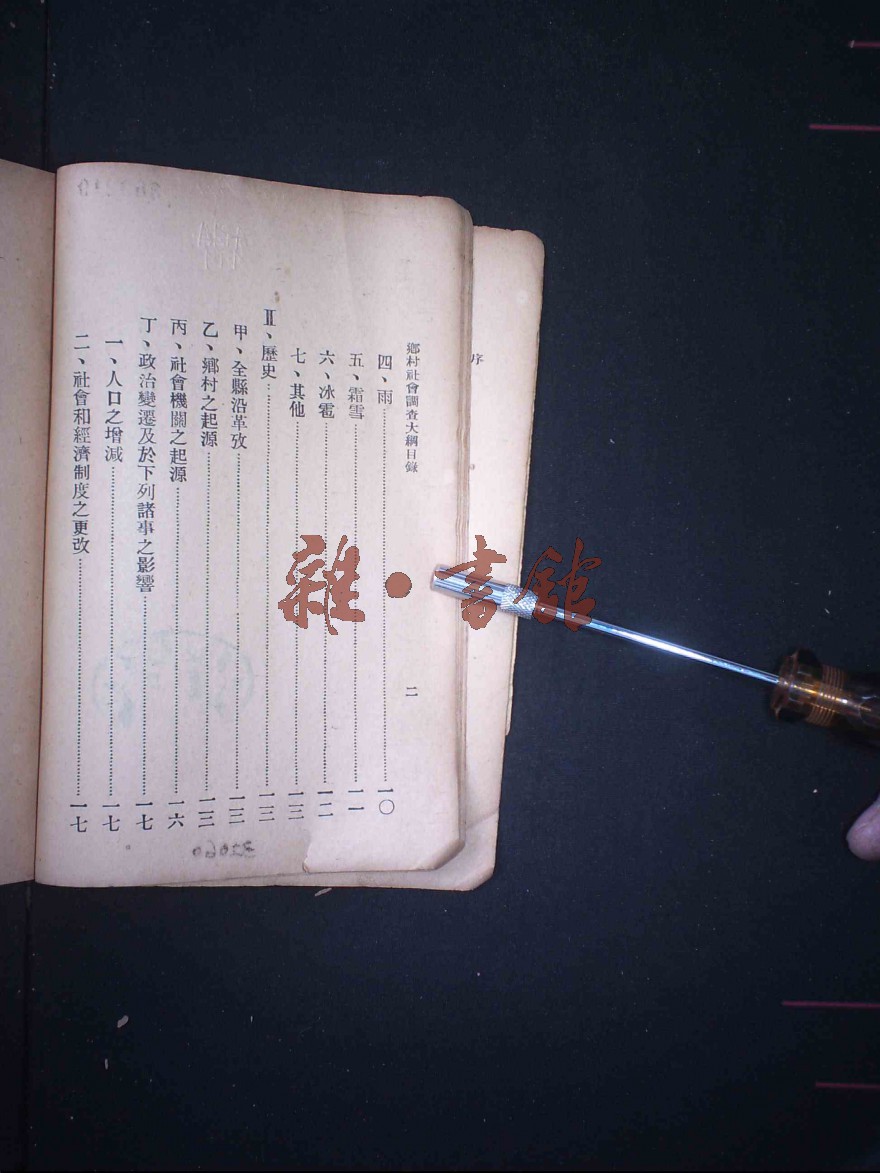 序
鄉村社會調查大綱目錄 二
四、雨…………一〇
五、霜雪…………一一
六、冰雹…………一二
七、其他…………一三
II、歷史…………一三
甲、全縣沿革攷…………一三
乙、鄉村之起源…………一三
丙、社會機關之起源…………一六
丁、政治變遷及於下列諸事之影響…………一七
一、人口之增減…………一七
二、社會和經濟制度之更改…………一七
雜·書館